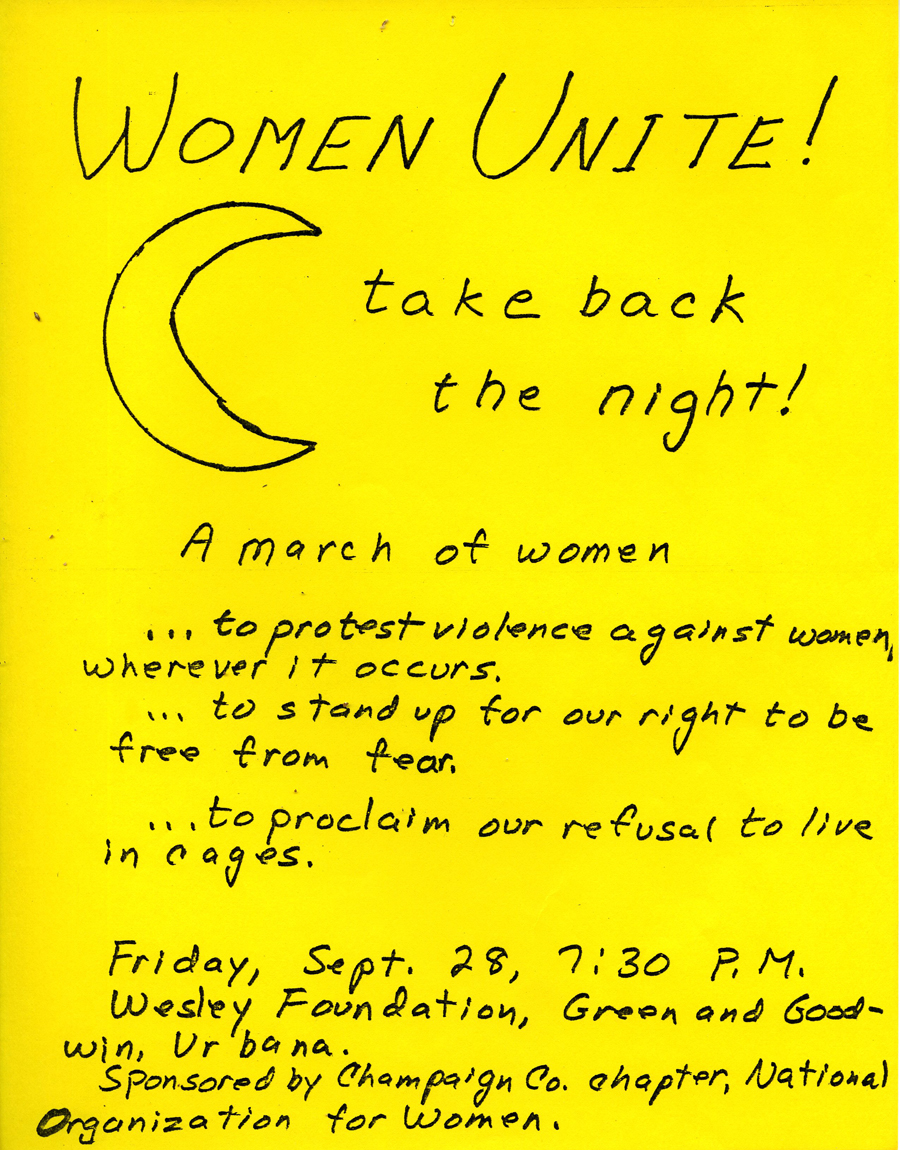 WOMEN UNITE!
take back
the night!
A march of women
... to protest violence against women,
wherever it occurs.
... to stand up for our right to be
free from fear.
...to proclaim our refusal to live
in cages.
Friday, Sept. 28, 7:30 P.M.
Wesley Foundation, Green and Good-
win, Urbana.
Sponsored by Champaign Co. chapter, National
Organization for Women.